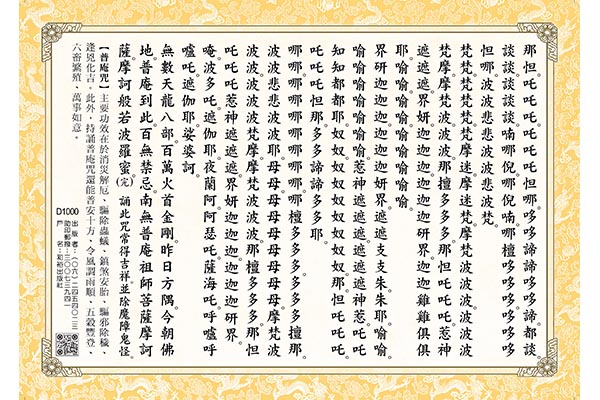 那怛吒吒吒吒吒怛哪多多諦諦多多諦都談
談談談談喃哪倪哪倪喃哪檀多多多多多
怛哪。波波悲悲波梵
梵梵梵梵梵摩迷摩迷梵摩梵波波波波波
梵摩梵摩波波波那檀多多那怛吒吒惹神
遮遮遮界妍迦迦迦迦迦研界迦迦雞雞俱俱
耶喻喻喻喻喻喻喻。
界研迦迦迦迦迦妍界。遮遮支支朱朱耶喻喻
喻喻喻惹神遮遮遮遮遮神惹吒吒
知知都都耶奴奴奴奴奴奴奴奴那怛吒吒
吒吒吒怛那多多諦諦多多耶
哪哪哪哪哪哪哪哪哪哪檀多多多檀那
波波悲悲波波耶母母母母母母母摩梵波
波波波波梵摩梵摩梵波波那檀多多多那怛
吒吒惹神遮遮遮界妍迦迦迦迦迦研界。
唵。波多吒。遮伽耶。夜蘭阿。阿瑟吒。薩海吒。吒呼嚧
嚧吒。遮伽耶娑婆訶
無數天龍八部。百萬火首金剛。昨日方隅。今朝佛
地。普庵到此。百無禁忌。南無普庵祖師菩薩摩訶
薩摩訶般若波羅蜜(完)　誦此咒常得吉祥並除魔障鬼怪
【普庵咒】主要功效在於消災解厄、驅除蟲蟻、鎮煞安胎、驅邪除穢、
逢兇化吉。此外，持誦普庵咒還能普安十方、令風調雨順、五穀豐登、
六畜繁殖、萬事如意。
D1000
出版者：(○六)二四五四○二三
助印郵撥：三○○七三九四一
戶名：和裕出版社